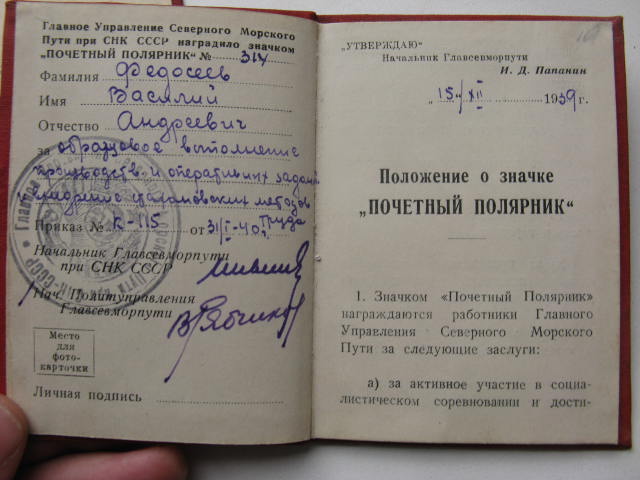 Главное Управление Северного Морского
Пути при СНК СССР наградило значком
„ПОЧЕТНЫЙ ПОЛЯРНИК" № 314
Фамилия Федосеев
Имя Василий
Отчество Андреевич
за образцовое выполнение
производств. и оперативных заданий
внедрение стахановских методов
труда
Приказ № К-115 от 31/I-40 г.
Начальник Главсевморпути
при СНК СССР
Нач. Политуправления
Главсевморпути
Место
для
фото-
карточки
Личная подпись
„УТВЕРЖДАЮ"
Начальник Главсевморпути
И. Д. Папанин
„15" XII 1939 г.
Положение о значке
„ПОЧЕТНЫЙ ПОЛЯРНИК"
1. Значком «Почетный Полярник»
награждаются работники Главного
Управления Северного Морского
Пути за следующие заслуги:
а) за активное участие в социа-
листическом соревновании и дости-